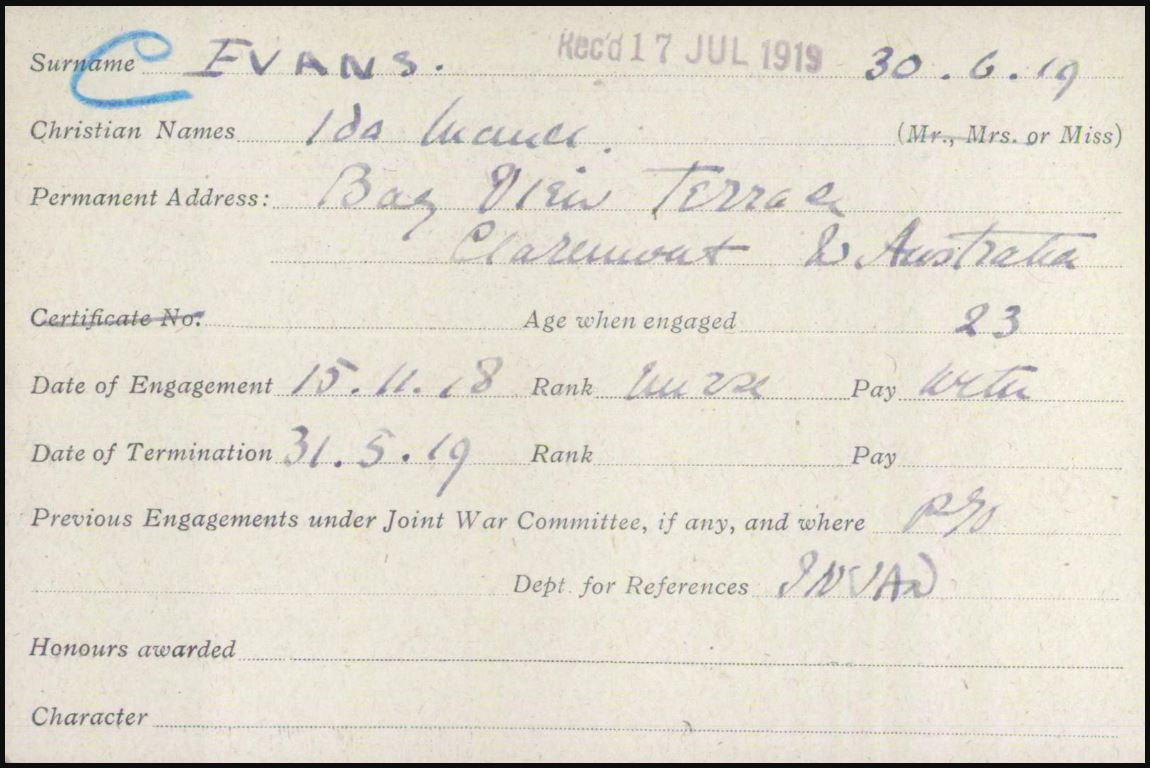 C
Surname EVANS. Rec'd 17 JUL 1919 30.6.19
Christian Names Ida Maud. (Mr., Mrs. or Miss)
Permanent Address: Bay View Terrace
Claremont W Australia
Certificate No. Age when engaged 23
Date of Engagement 15.11.18 Rank Nurse Pay
Date of Termination 31.5.19 Rank Pay
Previous Engagements under Joint War Committee, if any, and where
Dept for References
Honours awarded
Character